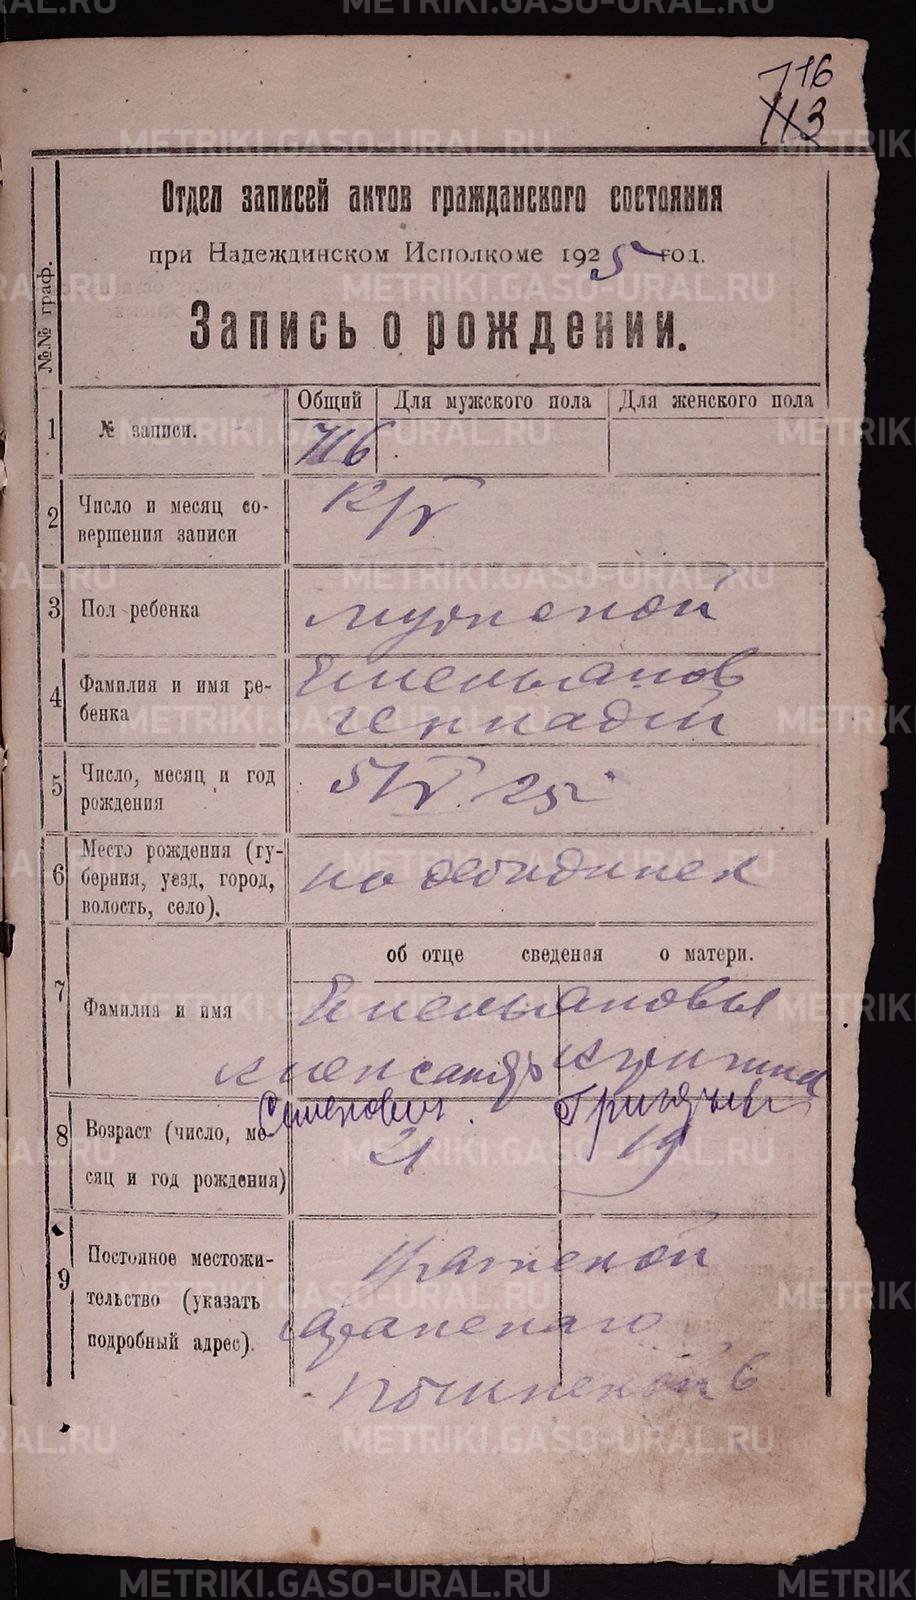 716
113
Отдел записей актов гражданского состояния
при Надеждинском Исполкоме 1925 год.
Запись о рождении.
№.№ граф.
Общий Для мужского пола Для женского пола
1 № записи. 716
2 Число и месяц со-
вершения записи
3 Пол ребенка мужской
4 Фамилия и имя ре-
бенка Емельянов
Геннадий
5 Число, месяц и год
рождения 5/V 25 г
6 Место рождения (гу-
берния, уезд, город,
волость, село).
об отце сведения о матери.
7 Фамилия и имя Емельяновы
Александр
Семенович Григорьев
8 Возраст (число, ме-
сяц и год рождения) 21 19
9 Постояное местожи-
тельство (указать
подробный адрес).
METRIKI.GASO-URAL.RU